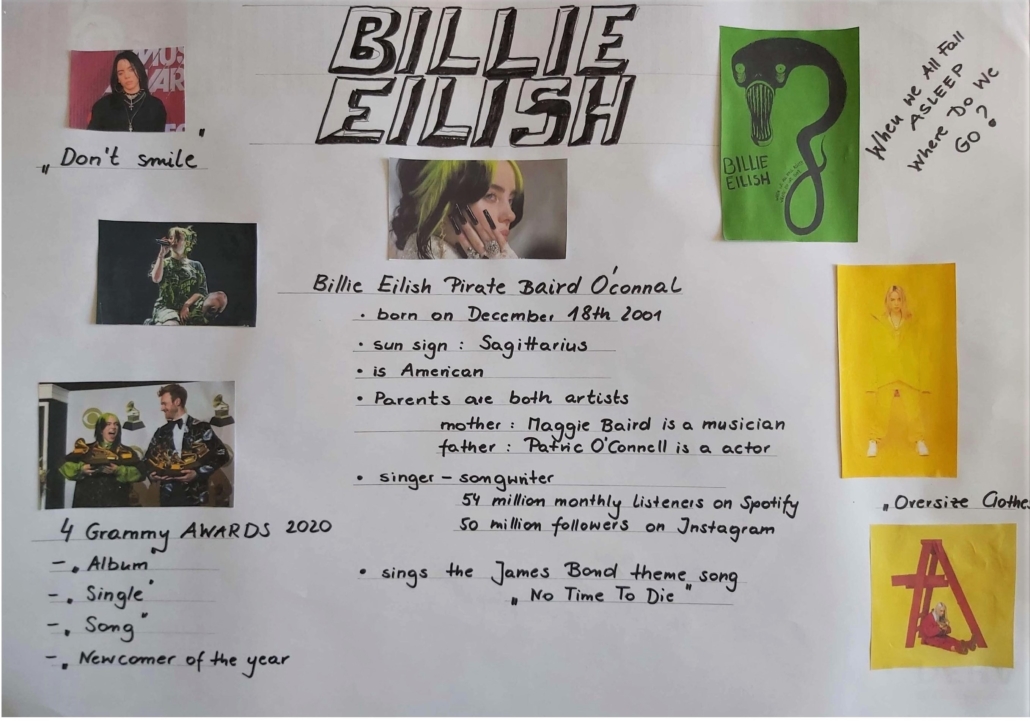 BILLIE
EILISH
MUS
WAR
„Don't smile"
BILLIE
EILISH
When we All Fall
ASLEEP
Where Do We
GO?
Billie Eilish Pirate Baird O'connal
• born on December 18th 2001
• sun sign : Sagittarius
• is American
• Parents are both artists
mother : Maggie Baird is a musician
father : Patric O'Connell is a actor
• singer - songwriter
54 million monthly listeners on Spotify
50 million followers on Instagram
• sings the James Bond theme song
„No Time To Die"
4 Grammy AWARDS 2020
- „Album"
- „Single"
- „Song"
- „Newcomer of the year
„Oversize Clothes